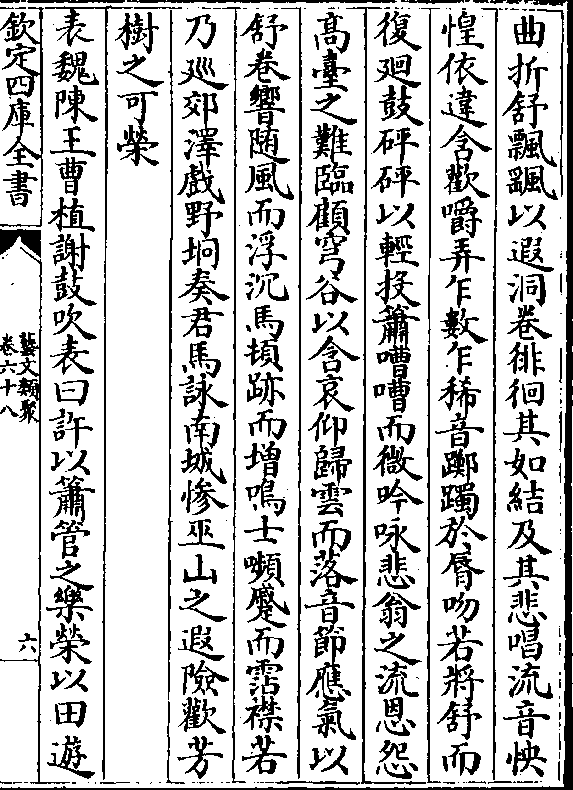 曲折舒飄颻以遐洞卷徘徊其如結及其悲唱流音怏
惶依違含歡嚼弄乍數乍稀音躑躅於脣吻若將舒而
復廻鼓砰砰以輕投簫嘈嘈而微吟咏悲翁之流恩怨
髙臺之難臨顧穹谷以含哀仰歸雲而落音節應氣以
舒卷響随風而浮沉馬頓跡而増鳴士嚬蹙而霑襟若
乃廵郊澤戯野坰奏君馬詠南城惨巫山之遐險歡芳
樹之可榮
表魏陳王曹植謝鼓吹表曰許以簫管之樂榮以田遊
欽定四庫全書
藝文類聚
卷六十八
六